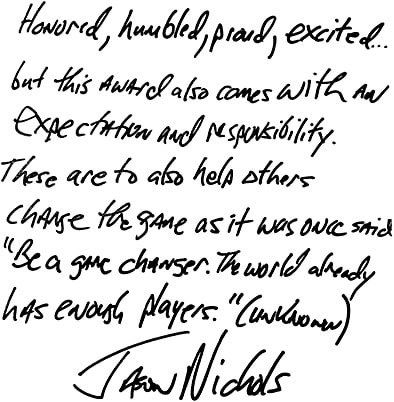 Honored, humbled, proud, excited...
but this award also comes with an
expectation and responsibility.
These are to also help others
change the game as it was once said
"Be a game changer. The world already
has enough players." (unknown)
Jason Nichols